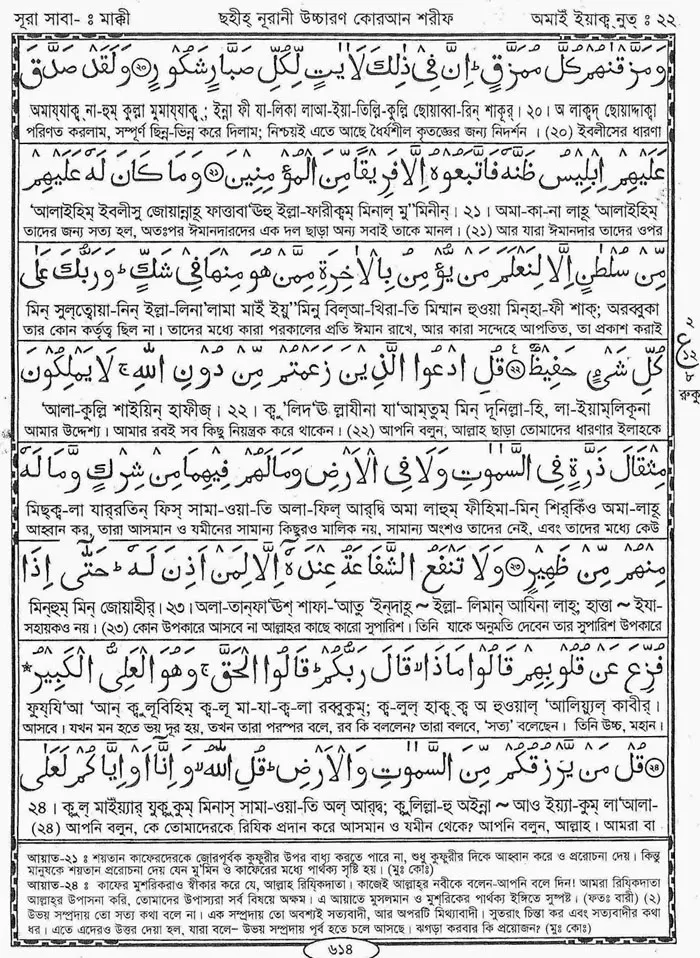 সূরা সাবা- ঃ মাক্কী ছহীহ্ নূরানী উচ্চারণ কোরআন শরীফ অমাইঁ ইয়াক্ব্ নুত্ ঃ ২২
وَمَزَّقْنٰهُمْ كُلَّ مُمَزَّقٍ ؕ اِنَّ فِيْ ذٰلِكَ لَاٰيٰتٍ لِّكُلِّ صَبَّارٍ شَكُوْرٍ ⓴ وَلَقَدْ صَدَّقَ
অমায্যাক্ব্ না-হুম্ কুল্লা মুমায্যাক্ব্ ; ইন্না ফী যা-লিকা লাআ-ইয়া-তিল্লি-কুল্লি ছোয়াব্বা-রিন্ শাকূর্। ২০। অ লাক্বদ্ ছোয়াদ্দাক্বা
পরিণত করলাম, সম্পূর্ণ ছিন্ন-ভিন্ন করে দিলাম; নিশ্চয়ই এতে আছে ধৈর্যশীল কৃতজ্ঞের জন্য নিদর্শন । (২০) ইবলীসের ধারণা
عَلَيْهِمْ اِبْلِيْسُ ظَنَّهٗ فَاتَّبَعُوْهُ اِلَّا فَرِيْقًا مِّنَ الْمُؤْمِنِيْنَ ㉑ وَمَا كَانَ لَهٗ عَلَيْهِمْ
'আলাইহিম্ ইবলীসু জোয়ান্নাহূ ফাত্তাবা'ঊহু ইল্লা-ফারীক্বম্ মিনাল্ মু"মিনীন্। ২১। অমা-কা-না লাহূ 'আলাইহিম্
তাদের জন্য সত্য হল, অতঃপর ঈমানদারদের এক দল ছাড়া অন্য সবাই তাকে মানল। (২১) আর যারা ঈমানদার তাদের ওপর
مِّنْ سُلْطٰنٍ اِلَّا لِنَعْلَمَ مَنْ يُّؤْمِنُ بِالْاٰخِرَةِ مِمَّنْ هُوَ مِنْهَا فِيْ شَكٍّ ؕ وَرَبُّكَ عَلٰى
মিন্ সুল্ত্বোয়া-নিন্ ইল্লা-লিনা'লামা মাইঁ ইয়ু"মিনু বিল্আ-খিরা-তি মিম্মান হুওয়া মিন্হা-ফী শাক্; অরব্বুকা
তার কোন কর্তৃত্ব ছিল না। তাদের মধ্যে কারা পরকালের প্রতি ঈমান রাখে, আর কারা সন্দেহে আপতিত, তা প্রকাশ করাই
كُلِّ شَيْءٍ حَفِيْظٌ ㉒ قُلِ ادْعُوا الَّذِيْنَ زَعَمْتُمْ مِّنْ دُوْنِ اللّٰهِ ۚ لَا يَمْلِكُوْنَ
রুকু
'আলা-কুল্লি শাইয়িন্ হাফীজ্। ২২। ক্বু লিদ'ঊ ল্লাযীনা যা'আম্তুম্ মিন্ দূনিল্লা-হি, লা-ইয়াম্লিকূনা
আমার উদ্দেশ্য। আমার রবই সব কিছু নিয়ন্ত্রক করে থাকেন। (২২) আপনি বলুন, আল্লাহ ছাড়া তোমাদের ধারণার ইলাহকে
مِثْقَالَ ذَرَّةٍ فِي السَّمٰوٰتِ وَلَا فِي الْاَرْضِ وَمَا لَهُمْ فِيْهِمَا مِنْ شِرْكٍ وَّمَا لَهٗ
মিছ্ক্ব-লা যার্রতিন্ ফিস্ সামা-ওয়া-তি অলা-ফিল্ আর্দ্বি অমা লাহুম্ ফীহিমা-মিন্ শির্কিঁও অমা-লাহূ
আহ্বান কর, তারা আসমান ও যমীনের সামান্য কিছুরও মালিক নয়, সামান্য অংশও তাদের নেই, এবং তাদের মধ্যে কেউ
مِنْهُمْ مِّنْ ظَهِيْرٍ ㉓ وَلَا تَنْفَعُ الشَّفَاعَةُ عِنْدَهٗٓ اِلَّا لِمَنْ اَذِنَ لَهٗ ؕ حَتّٰٓى اِذَا
মিন্হুম্ মিন্ জোয়াহীর্। ২৩। অলা-তান্ফা'ঊশ্ শাফা-'আতু 'ইন্দাহূ ~ ইল্লা- লিমান্ আযিনা লাহ্; হাত্তা ~ ইযা-
সহায়কও নয়। (২৩) কোন উপকারে আসবে না আল্লাহর কাছে কারো সুপারিশ। তিনি যাকে অনুমতি দেবেন তার সুপারিশ উপকারে
فُزِّعَ عَنْ قُلُوْبِهِمْ قَالُوْا مَاذَا ۙ قَالَ رَبُّكُمْ ؕ قَالُوا الْحَقَّ ۚ وَهُوَ الْعَلِيُّ الْكَبِيْرُ *
ফুয্যি'আ 'আন্ ক্বুলূবিহিম্ ক্ব-লূ মা-যা-ক্ব-লা রব্বুকুম্; ক্ব-লুল্ হাক্ব্ ক্ব অ হুওয়াল্ 'আলিয়্যুল্ কাবীর্।
আসবে। যখন মন হতে ভয় দূর হয়, তখন তারা পরস্পর বলে, রব কি বললেন? তারা বলবে, 'সত্য' বলেছেন। তিনি উচ্চ, মহান।
㉔ قُلْ مَنْ يَّرْزُقُكُمْ مِّنَ السَّمٰوٰتِ وَالْاَرْضِ ؕ قُلِ اللّٰهُ ۙ وَاِنَّآ اَوْ اِيَّاكُمْ لَعَلٰى
২৪। ক্বুল্ মাইঁয়্যার্ যুক্বুকুম্ মিনাস্ সামা-ওয়া-তি অল্ আর্দ্ব; ক্বুলিল্লা-হু অইন্না ~ আও ইয়্যা-কুম্ লা'আলা-
(২৪) আপনি বলুন, কে তোমাদেরকে রিযিক প্রদান করে আসমান ও যমীন থেকে? আপনি বলুন, আল্লাহ। আমরা বা
আয়াত-২১ ঃ শয়তান কাফেরদেরকে জোরপূর্বক কুফুরীর উপর বাধ্য করতে পারে না, শুধু কুফুরীর দিকে আহ্বান করে ও প্ররোচনা দেয়। কিন্তু
মানুষকে শয়তান প্ররোচনা দেয় যেন মু'মিন ও কাফেরের মধ্যে পার্থক্য সৃষ্টি হয়। (মুঃ কোঃ)
আয়াত-২৪ ঃ কাফের মুশরিকরাও স্বীকার করে যে, আল্লাহ রিযিকদাতা। কাজেই আল্লাহর নবীকে বলেন-আপনি বলে দিন! আমরা রিযিকদাতা
আল্লাহর উপাসনা করি, তোমাদের উপাস্যরা সর্ব বিষয়ে অক্ষম। এ আয়াতে মুসলমান ও মুশরিকের পার্থক্য ইঙ্গিতে সুস্পষ্ট। (ফতঃ বারী) (২)
উভয় সম্প্রদায় তো সত্য কথা বলে না। এক সম্প্রদায় তো অবশ্যই সত্যবাদী, আর অপরটি মিথ্যাবাদী। সুতরাং চিন্তা কর এবং সত্যবাদীর কথা
ধর। এতে এদেরও উত্তর দেয়া হল, যারা বলে- উভয় সম্প্রদায় পূর্ব হতে চলে আসছে। ঝগড়া করবার কি প্রয়োজন? (মুঃ কোঃ)
৬১৪